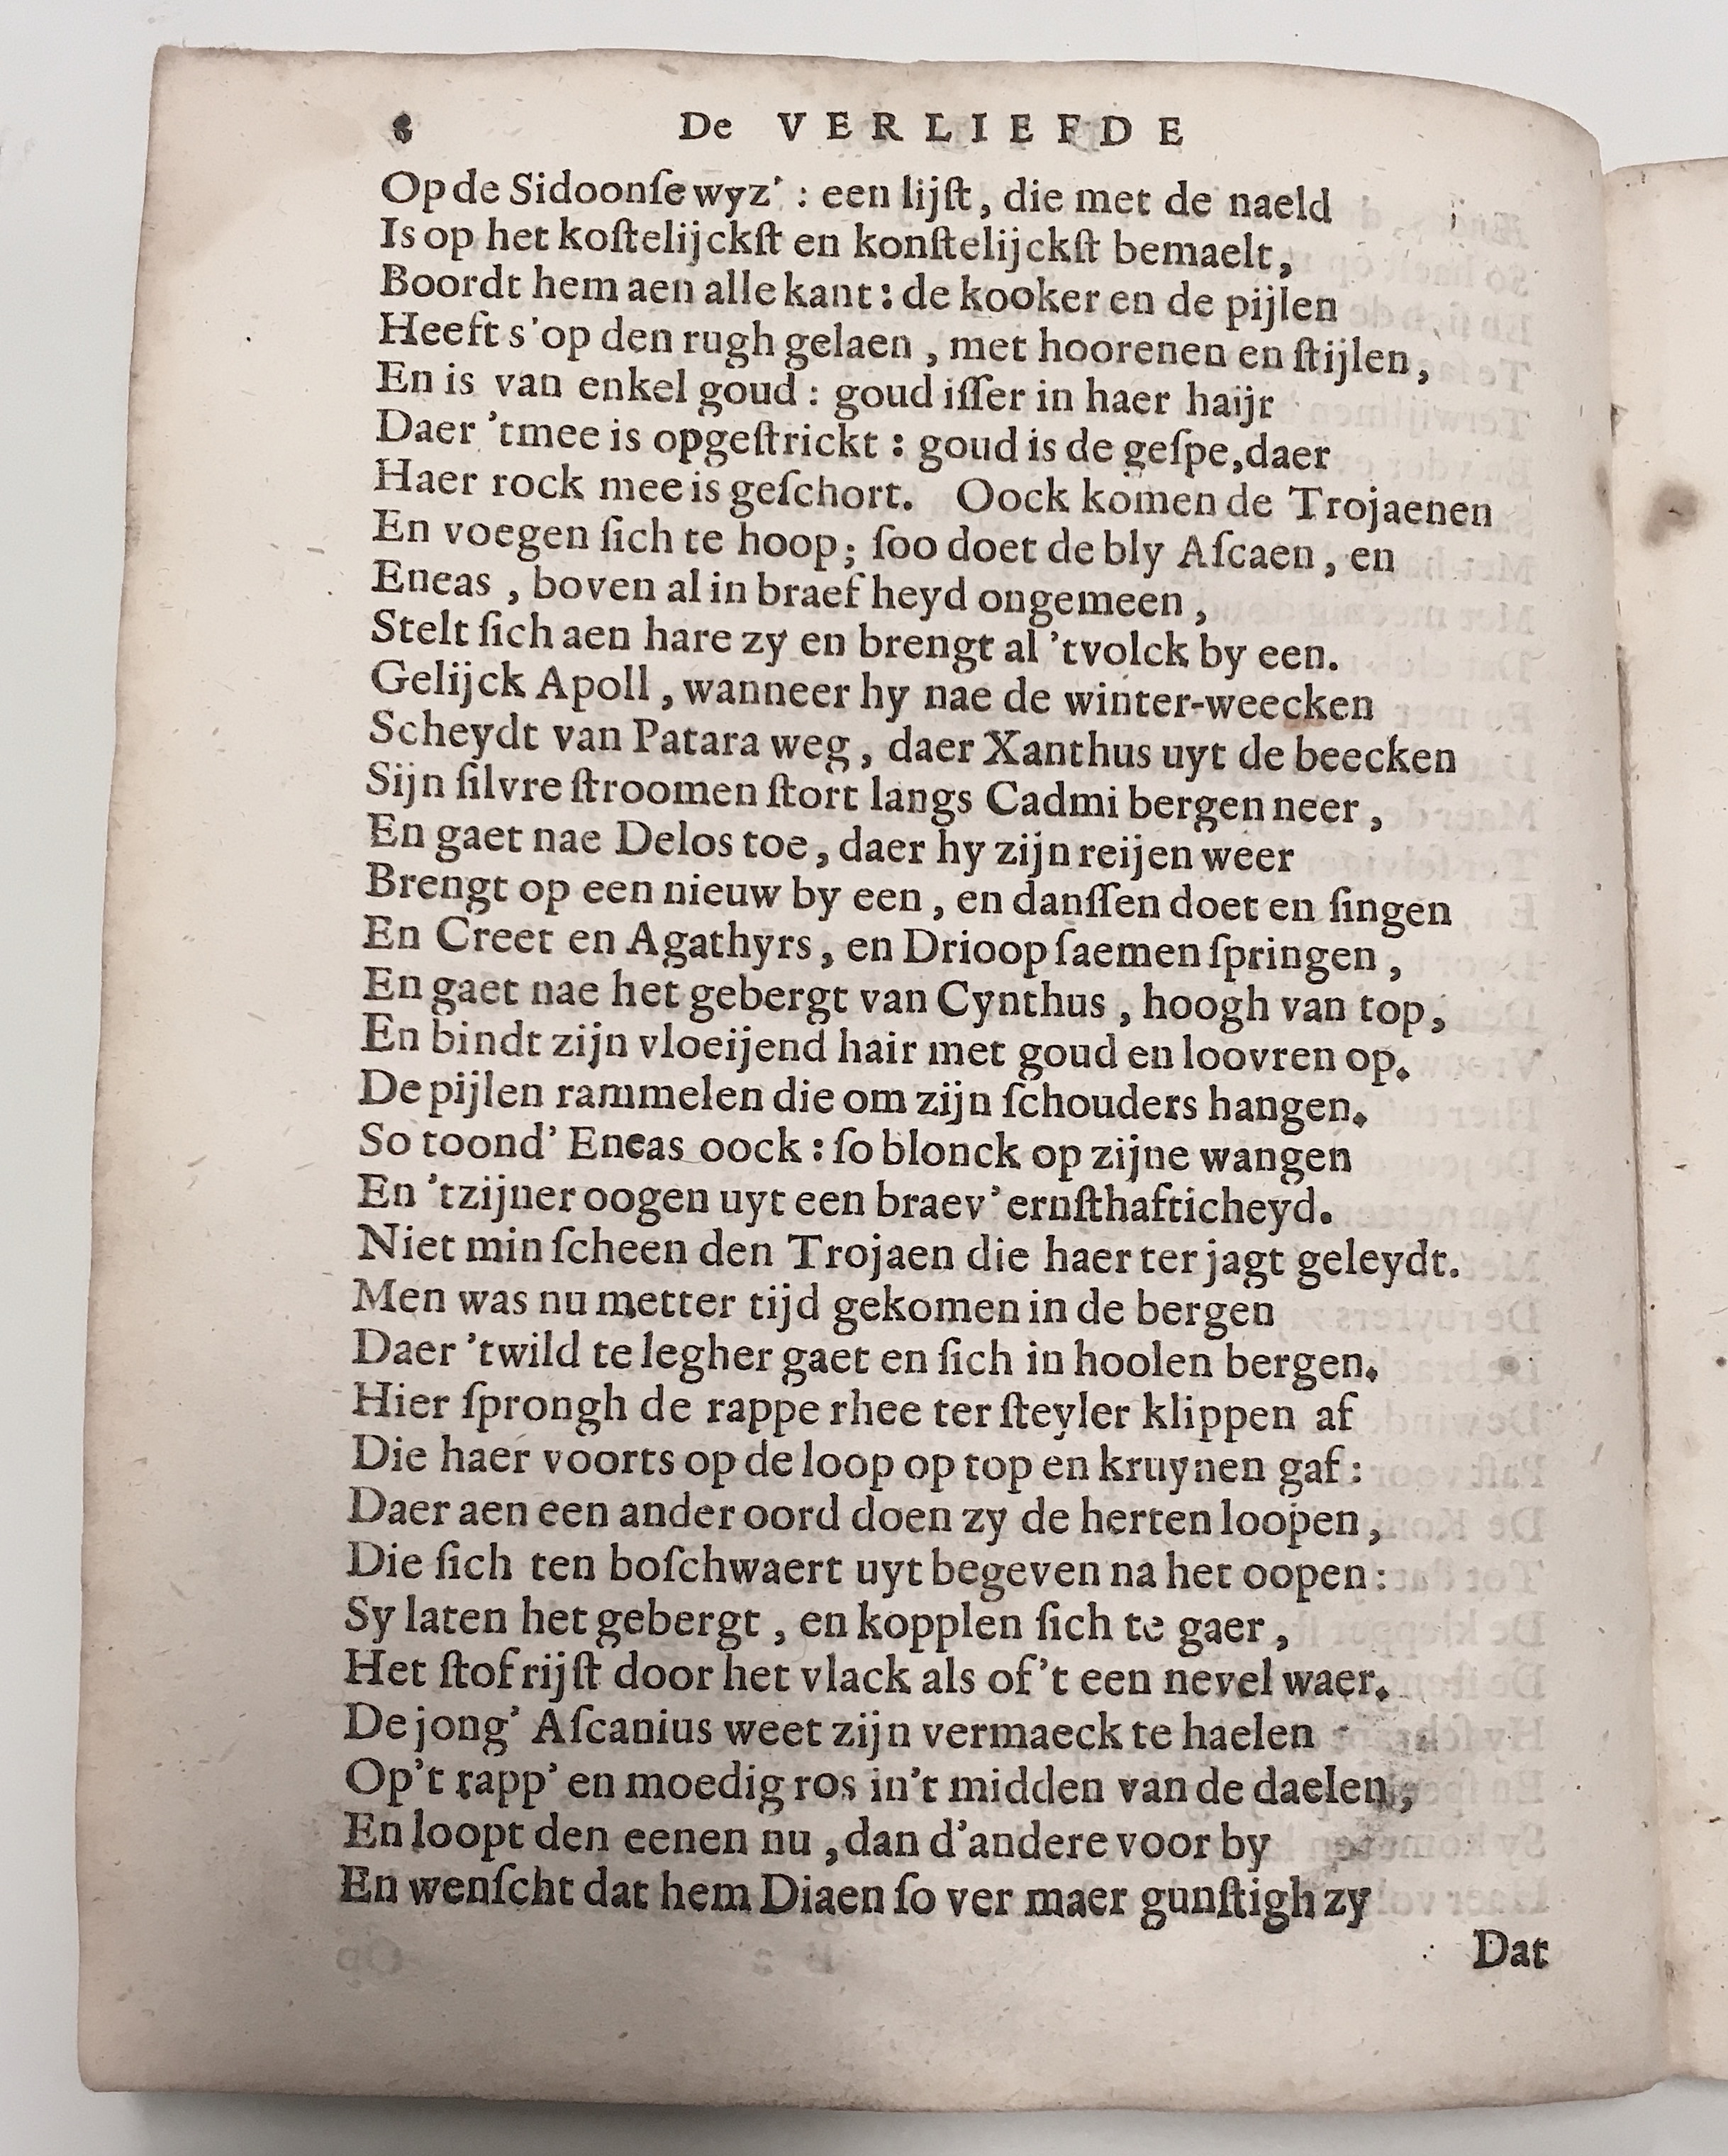 8 De VERLIEFDE
Op de Sidoonſe wyz’ : een lijſt, die met de naeld
Is op het koſtelijckſt en konſtelijckſt bemaelt,
Boordt hem aen alle kant : de kooker en de pijlen
Heeft s’op den rugh gelaen , met hoorenen en ſtijlen,
En is van enkel goud : goud iſſer in haer haijr
Daer ’tmee is opgeſtrickt : goud is de geſpe, daer
Haer rock mee is geſchort. Oock komen de Trojaenen
En voegen ſich te hoop; ſoo doet de bly Aſcaen, en
Eneas , boven al in braef heyd ongemeen ,
Stelt ſich aen hare zy en brengt al ’tvolck by een.
Gelijck Apoll , wanneer hy nae de winter-weecken
Scheydt van Patara weg, daer Xanthus uyt de beecken
Sijn ſilvre ſtroomen ſtort langs Cadmi bergen neer ,
En gaet nae Delos toe, daer hy zijn reijen weer
Brengt op een nieuw by een , en danſſen doet en ſingen
En Creet en Agathyrs, en Drioop ſaemen ſpringen ,
En gaet nae het gebergt van Cynthus , hoogh van top,
En bindt zijn vloeijend hair met goud en loovren op.
De pijlen rammelen die om zijn ſchouders hangen.
So toond’ Eneas oock : ſo blonck op zijne wangen
En ’tzijner oogen uyt een braev’ ernſthafticheyd.
Niet min ſcheen den Trojaen die haer ter jagt geleydt.
Men was nu metter tijd gekomen in de bergen
Daer ’twild te legher gaet en ſich in hoolen bergen.
Hier ſprongh de rappe rhee ter ſteyler klippen af
Die haer voorts op de loop op top en kruynen gaf :
Daer aen een ander oord doen zy de herten loopen,
Die ſich ten boſchwaert uyt begeven na het oopen :
Sy laten het gebergt , en kopplen ſich te gaer ,
Het ſtof rijſt door het vlack als of’t een nevel waer.
De jong’ Aſcanius weet zijn vermaeck te haelen
Op’t rapp’ en moedig ros in’t midden van de daelen,
En loopt den eenen nu , dan d’andere voor by
En wenſcht dat hem Diaen ſo ver maer gunſtigh zy
Dat